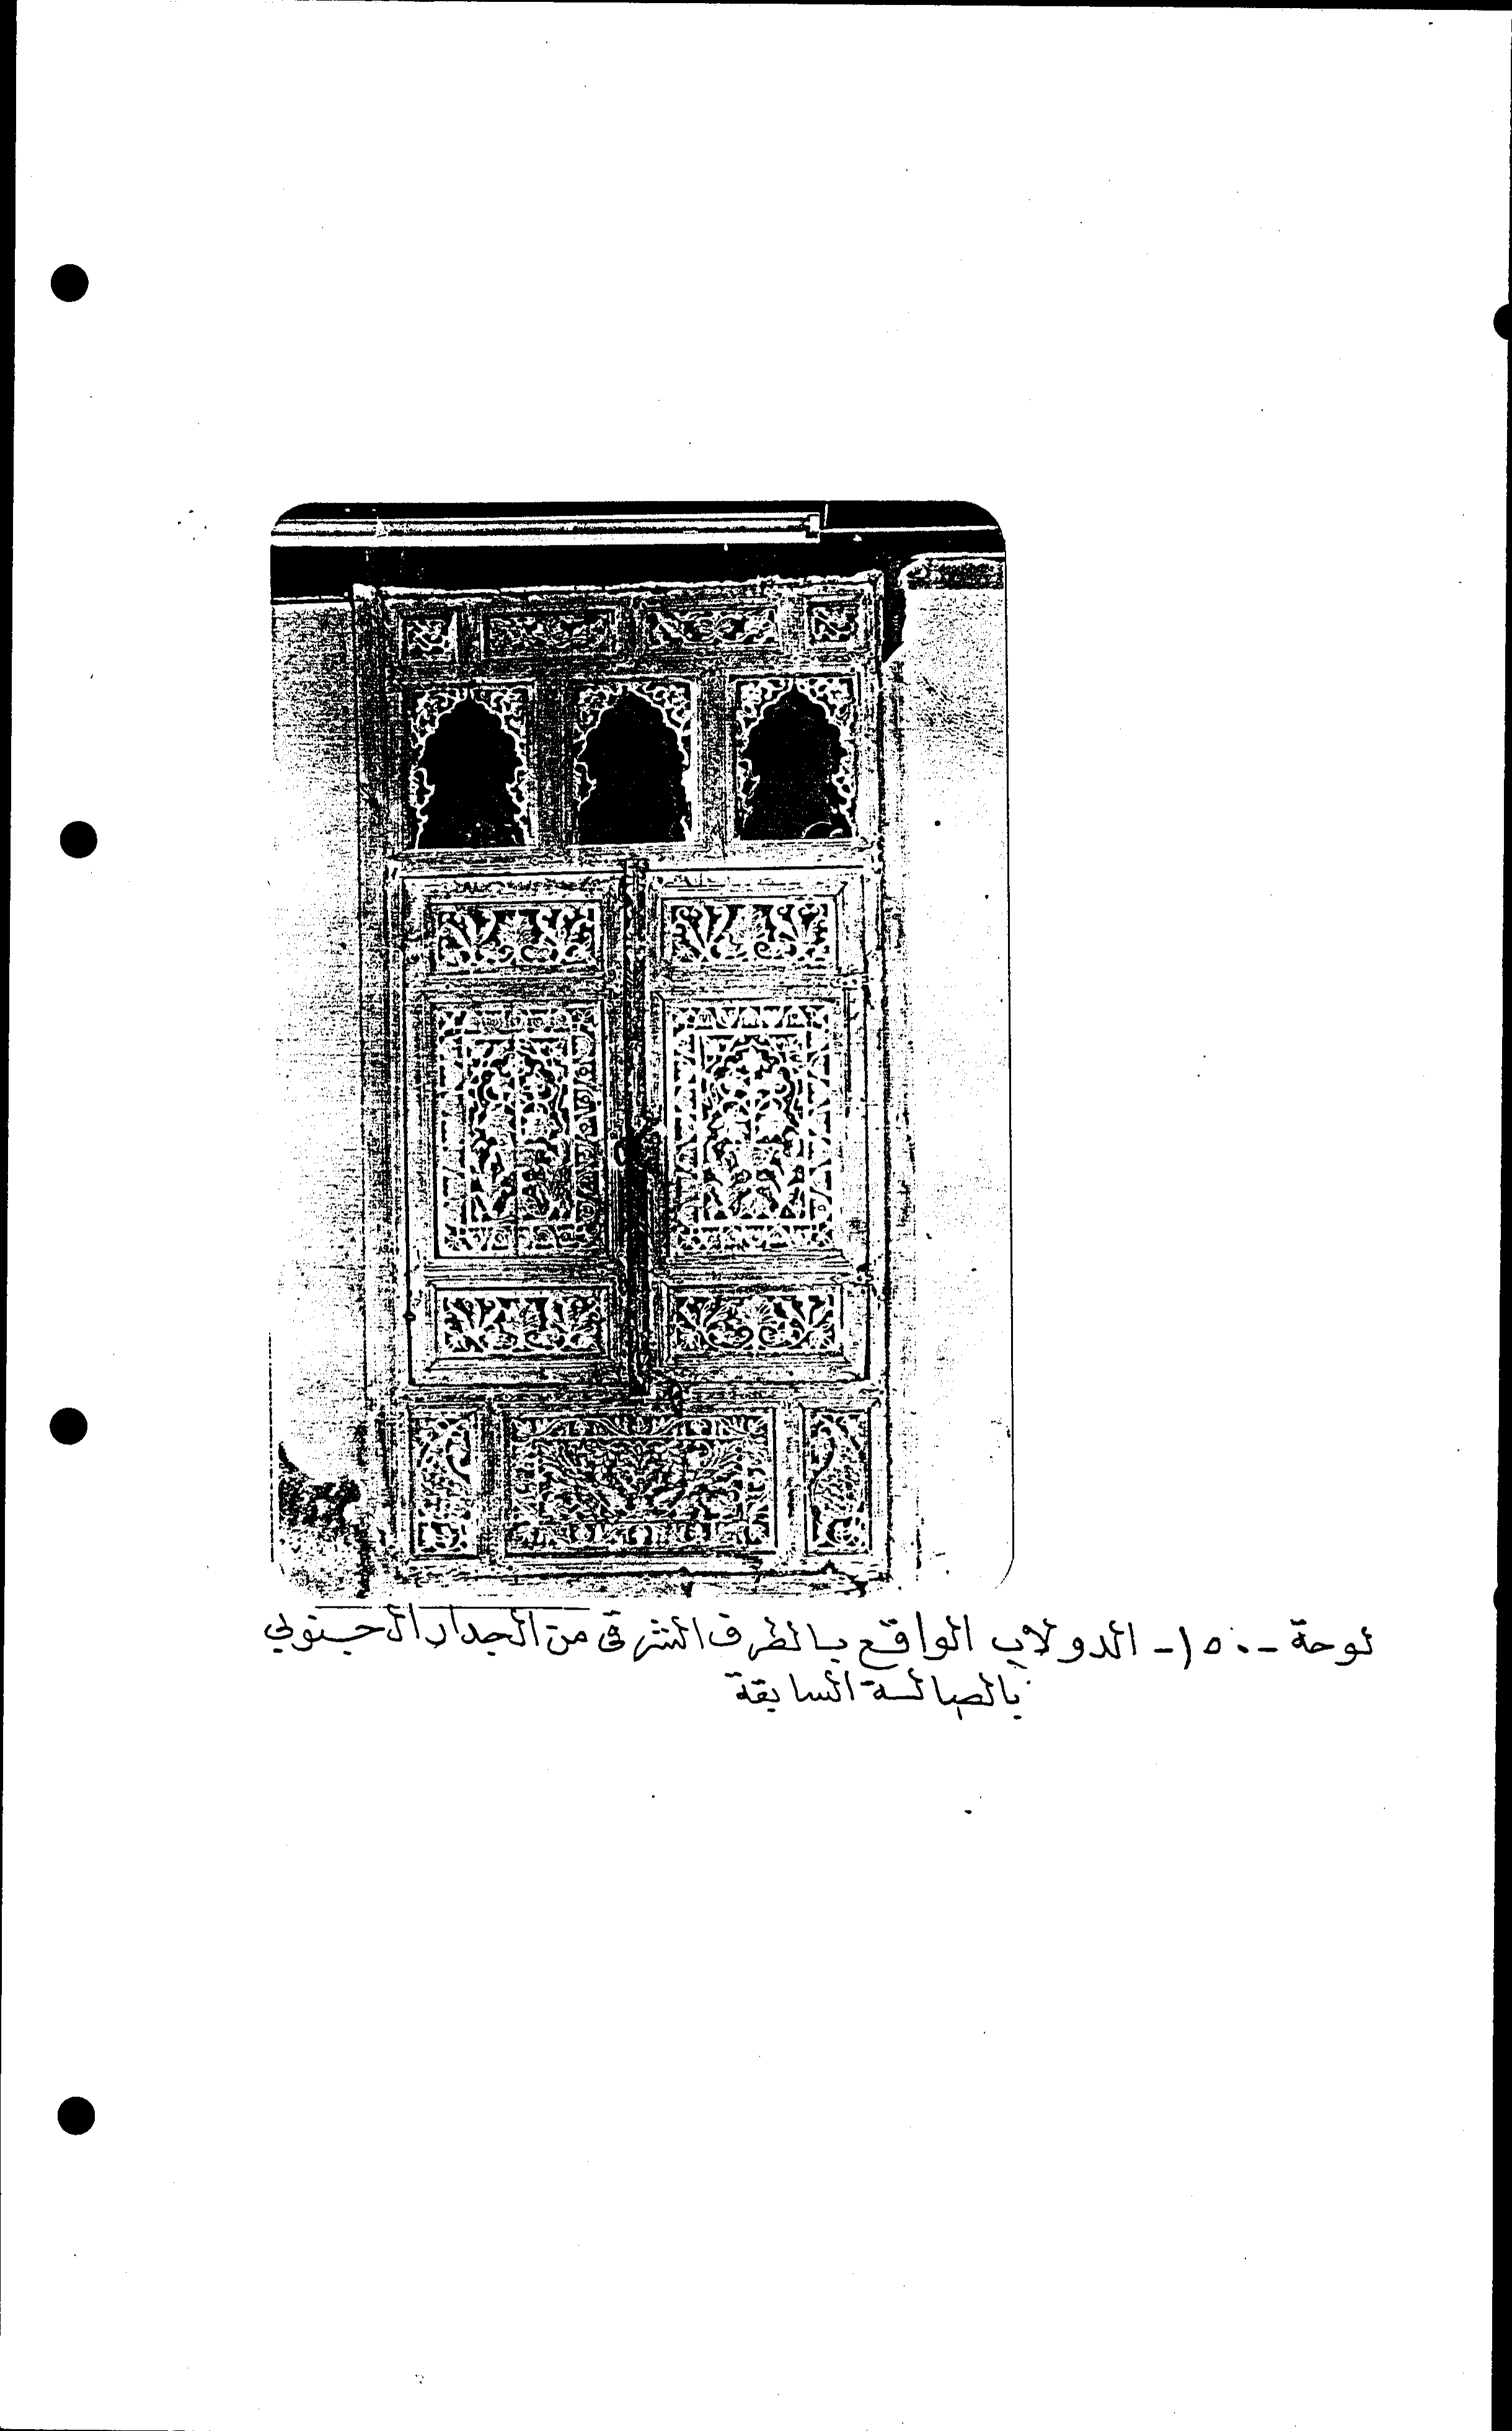 لوحة -١٥٠- الدولاب الواقع بالطرف الشرقى من الجدار الجنوبي
بالصالة السابقة